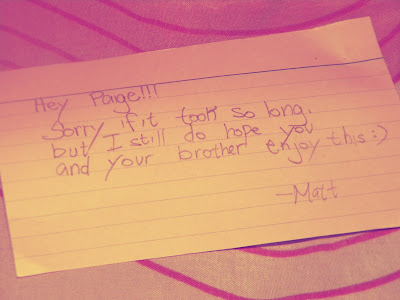 Hey Paige!!!
Sorry if it took so long.
but I still do hope you
and your brother enjoy this :)
—Matt